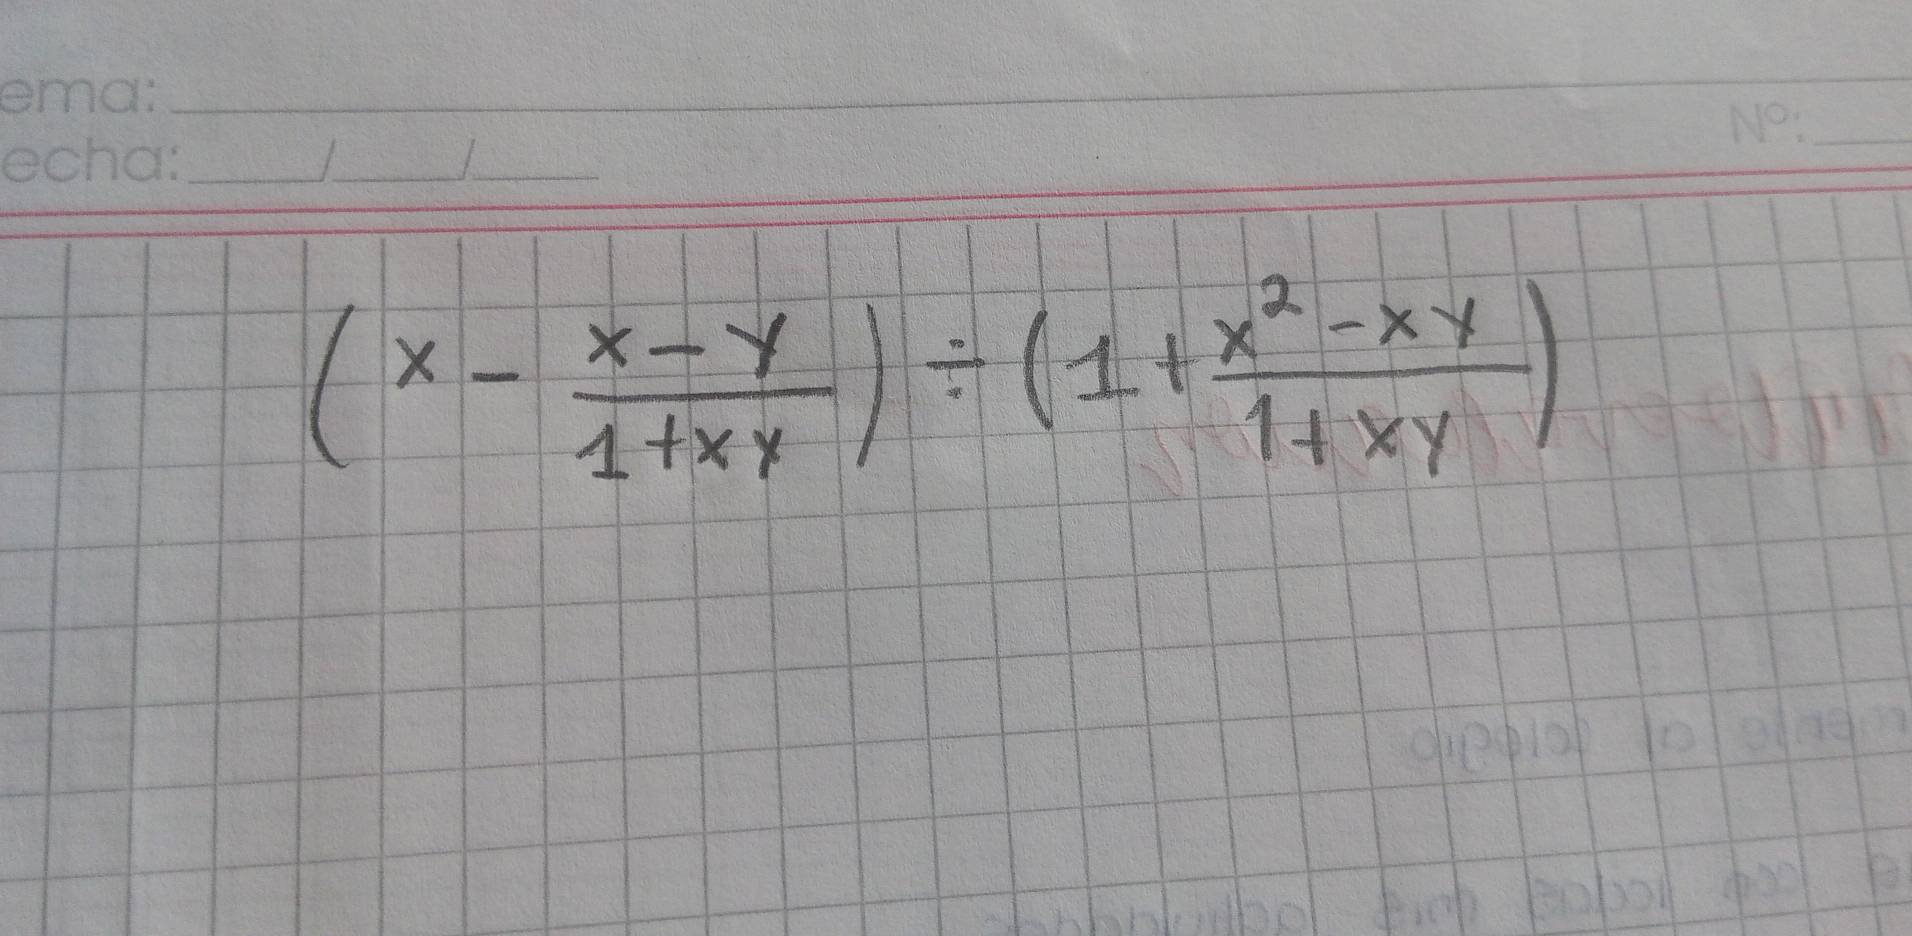 ema:
Nº:
echa: / /
(x - \frac{x - y}{1 + xy}) ÷ (1 + \frac{x² - xy}{1 + xy})